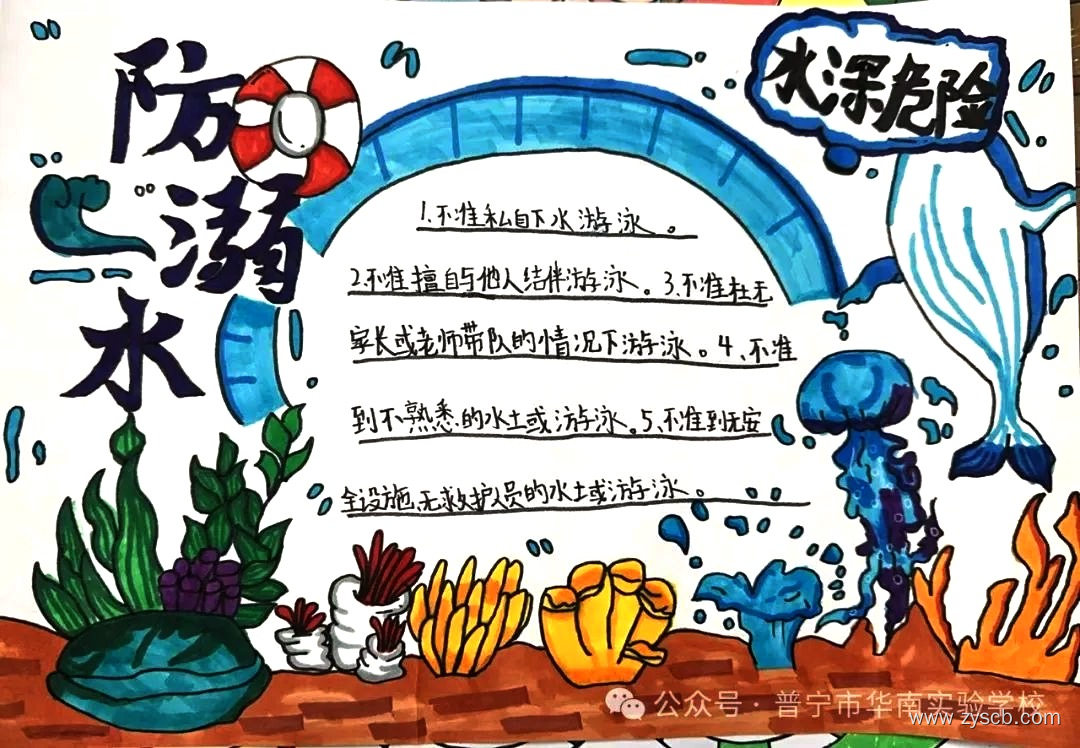 防溺水
水深危险
1.不准私自下水游泳。
2.不准擅自与他人结伴游泳。3.不准在无
家长或老师带队的情况下游泳。4、不准
到不熟悉的水土或游泳。5、不准到无安
全设施、无救护人员的水土或游泳。
公众号·普宁市华南实验学校
www.zyscb.com